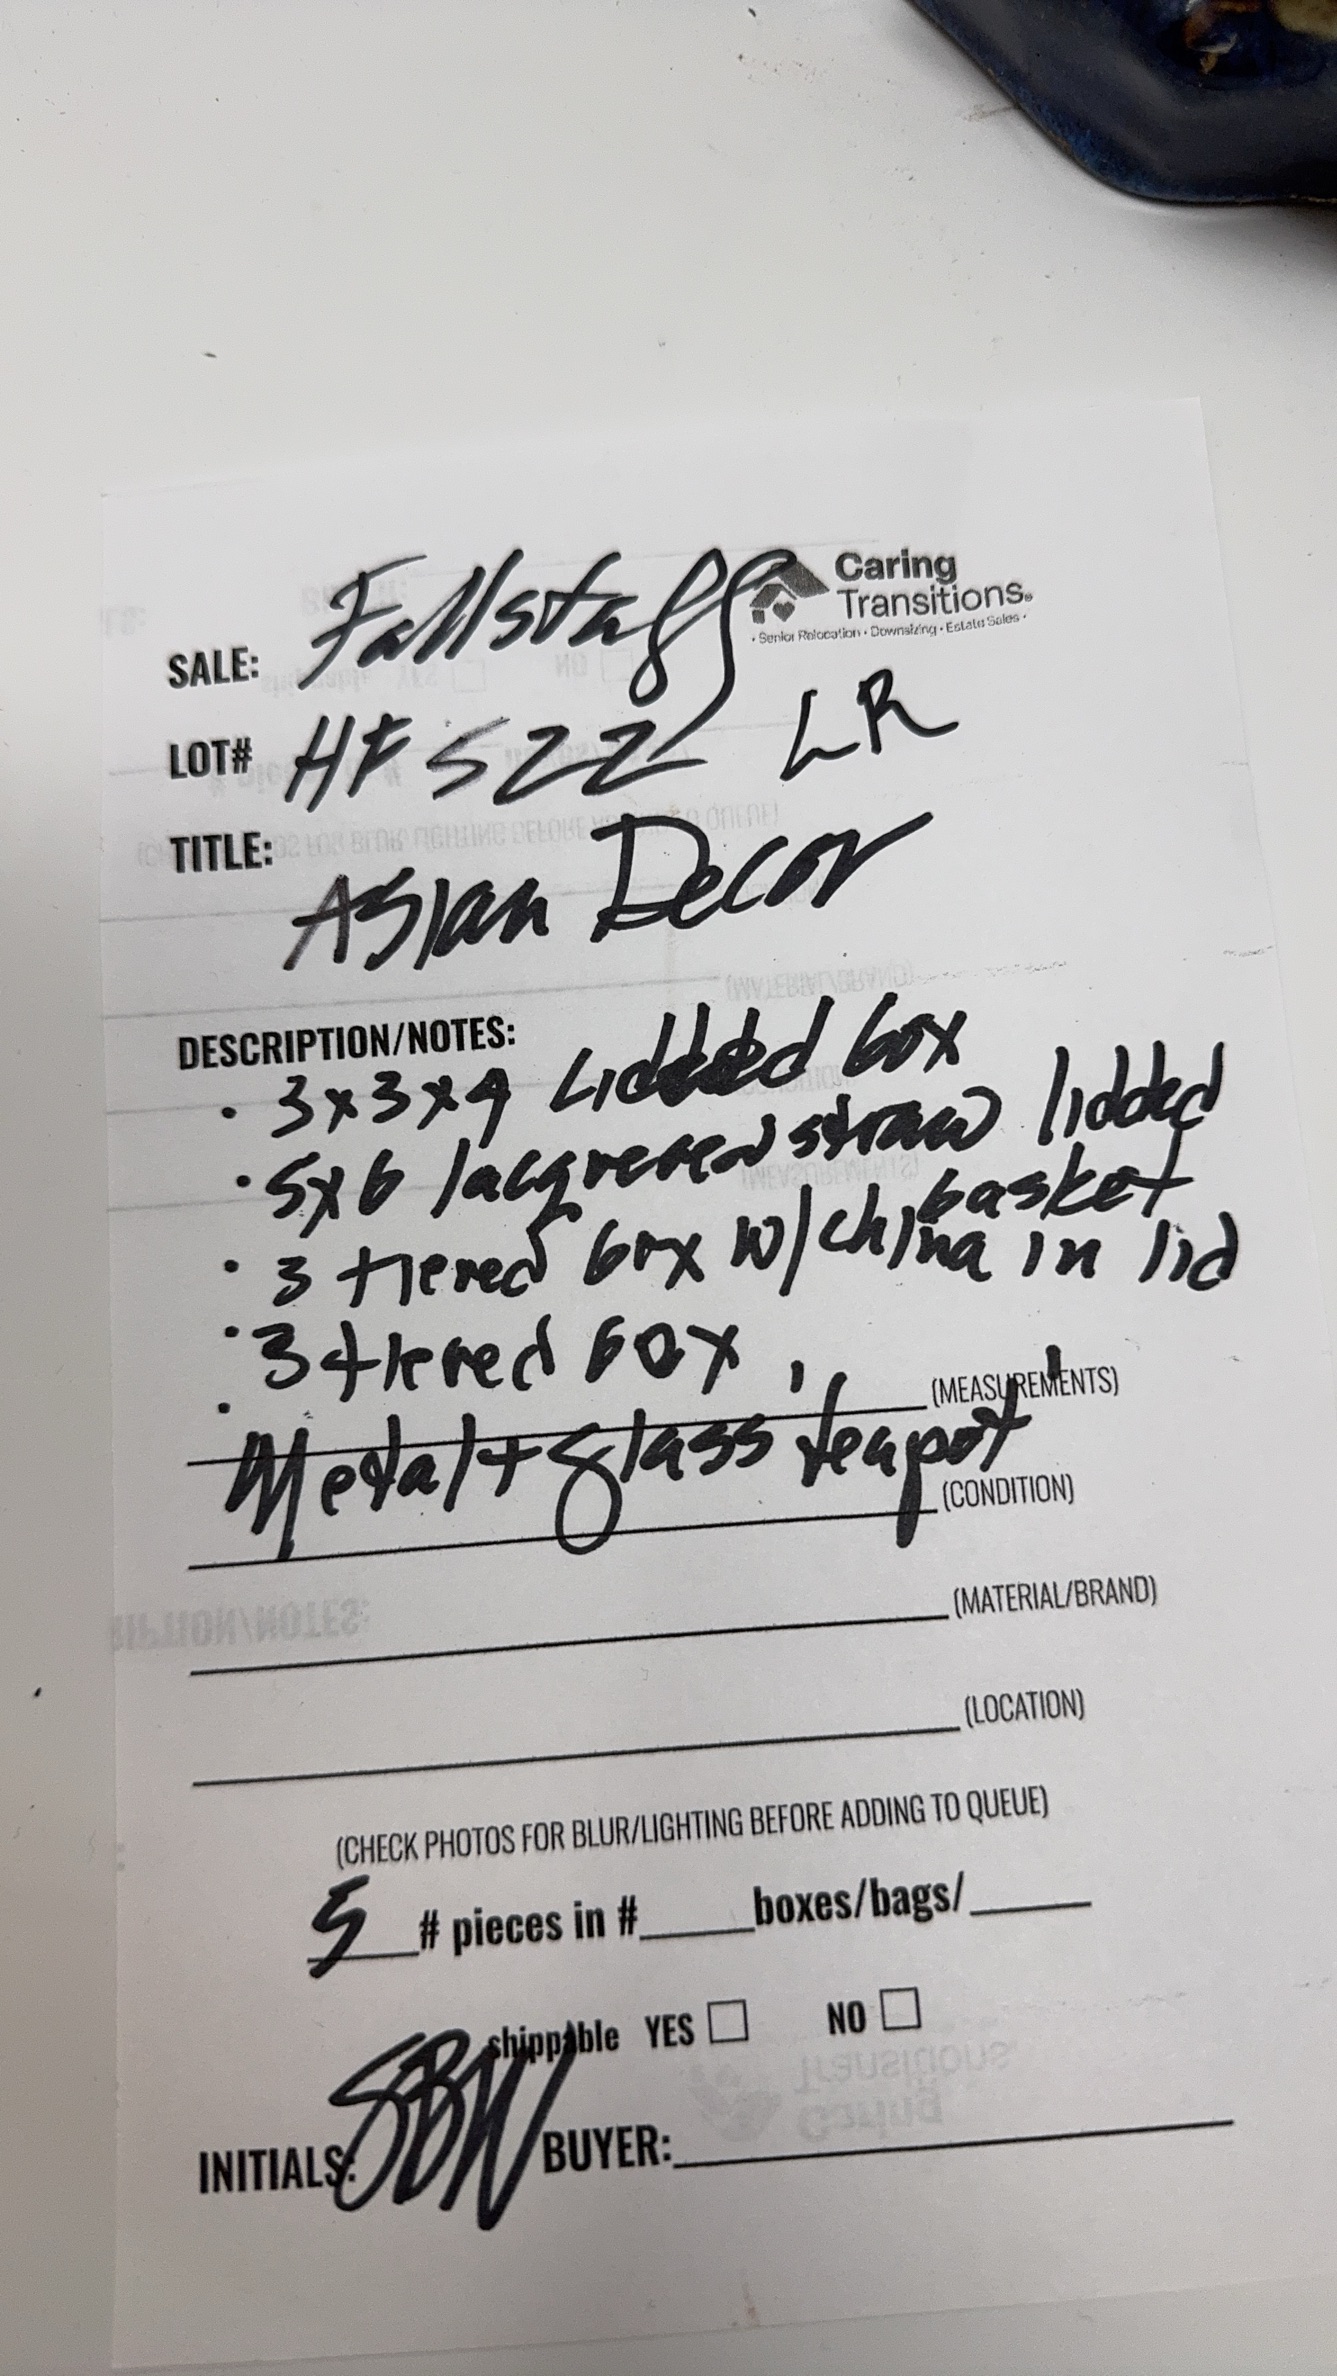 Caring
Transitions®
• Senior Relocation • Downsizing • Estate Sales •
SALE: Fallstaff
LOT# HF 522 LR
TITLE:
Asian Decor
DESCRIPTION/NOTES:
• 3x3x4 Lidded box
• 5x6 lacquered straw lidded
basket
• 3 tiered box w/china in lid
• 3 tiered box
(MEASUREMENTS)
• Metal + glass 'teapot'
(CONDITION)
(MATERIAL/BRAND)
(LOCATION)
(CHECK PHOTOS FOR BLUR/LIGHTING BEFORE ADDING TO QUEUE)
5 # pieces in #_____boxes/bags/_____
shippable YES ☐ NO ☐
INITIALS: SBW BUYER: